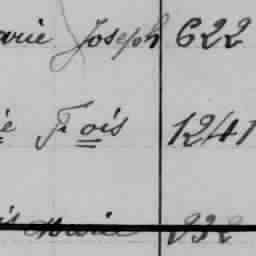 arie Joseph 622
ie Fr ois 1241
is Marie 832